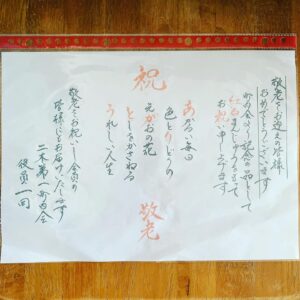 敬老をお迎えの皆様
おめでとうございます
町内会より記念の品として
紅白まんじゅうをもって
お祝い申し上げます
祝
あかるい毎日
色とりどりの
えがおの花
としをかさねる
うれしい人生
敬老
敬老をお祝いし、会員の
皆様にもお届けいたします
二木第一町内会
役員一同